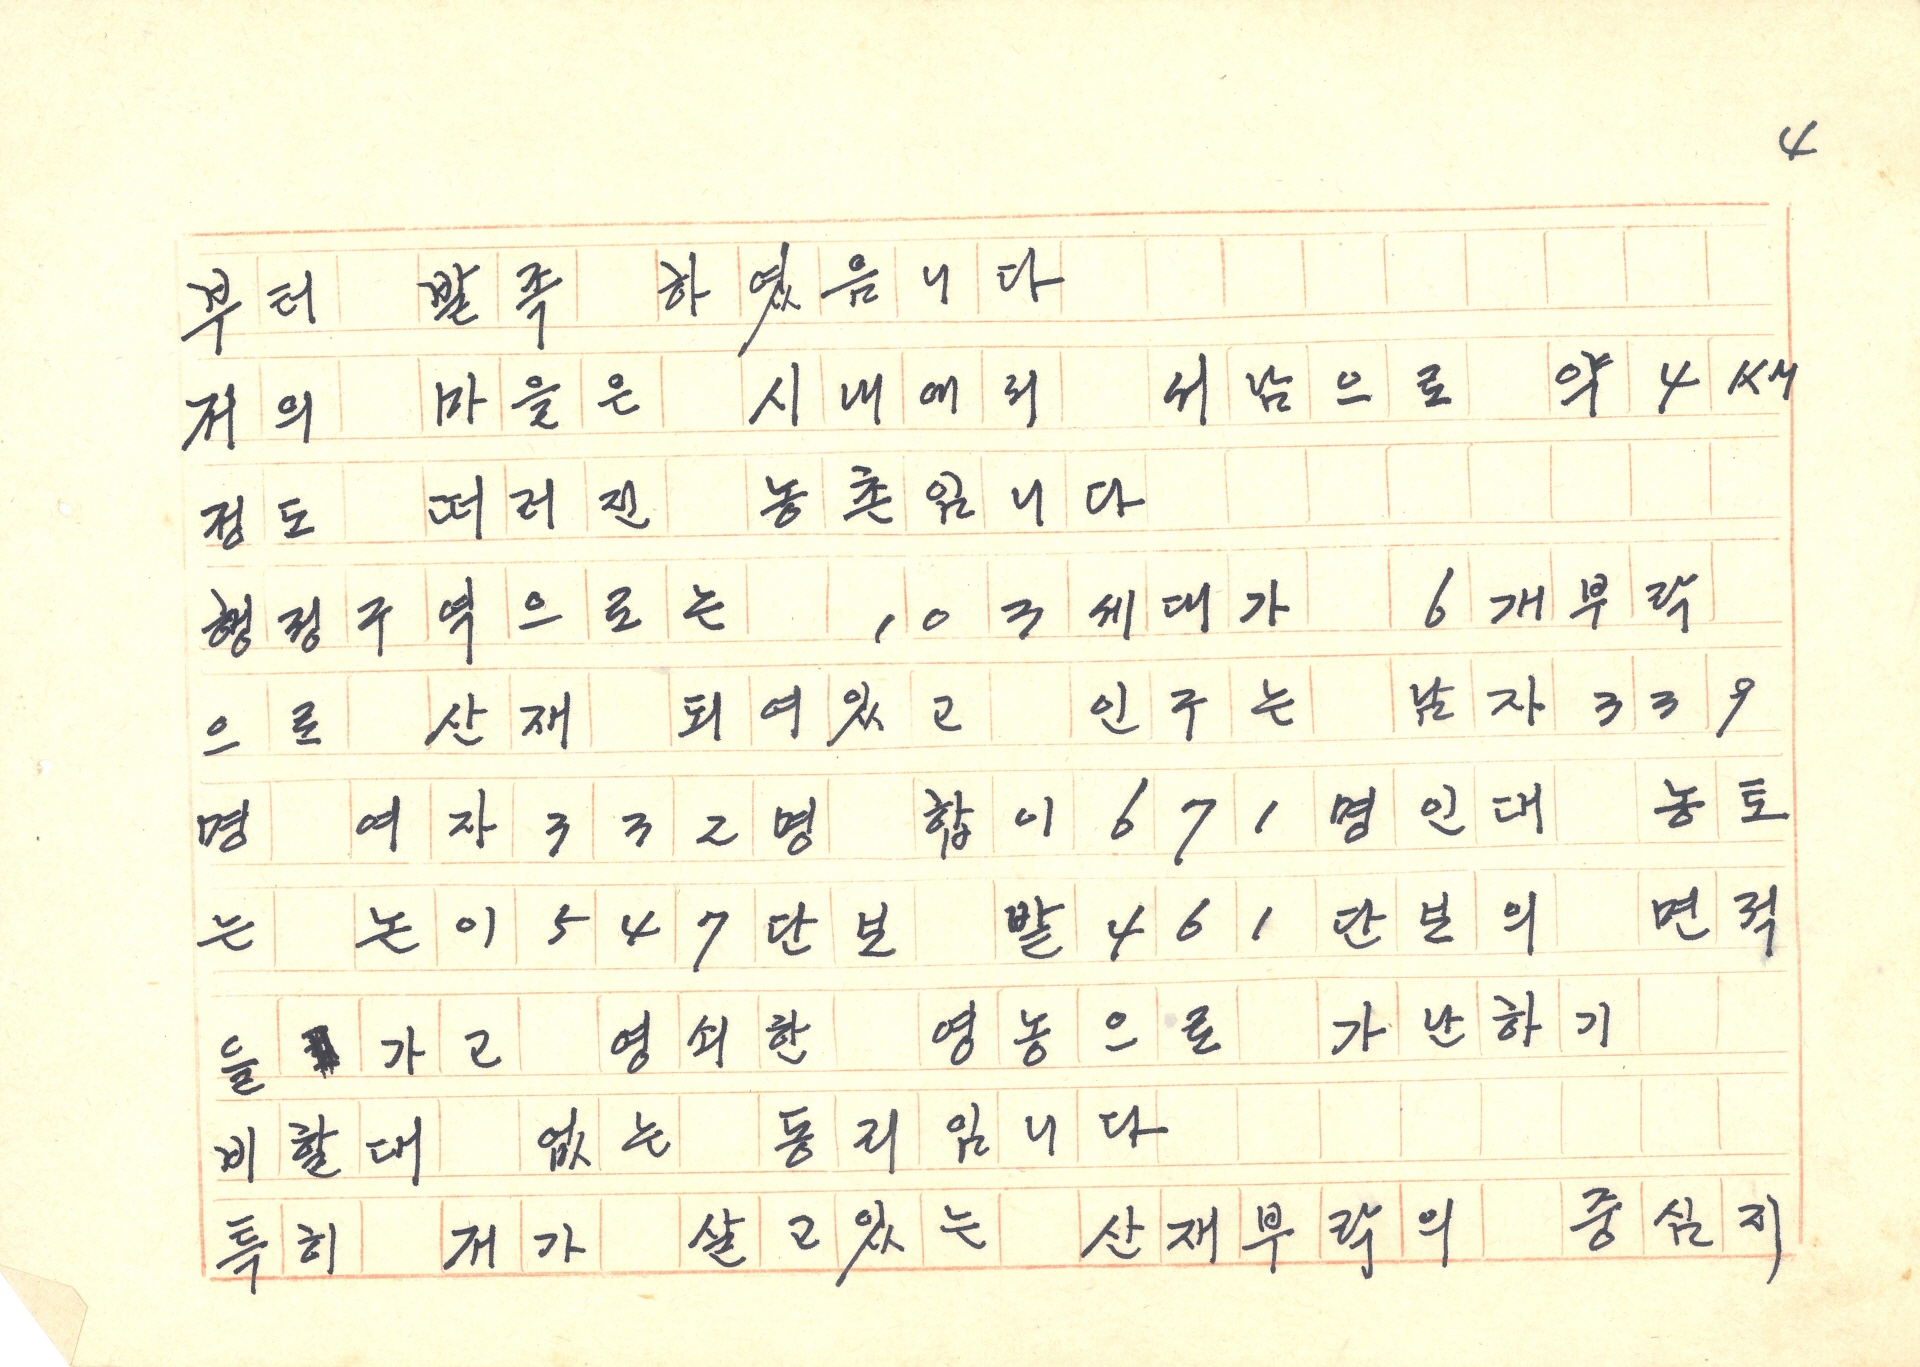 4
부터 발족 하였음니다
저의 마을은 시내에서 서남으로 약4KM
정도 떠러진 농촌임니다
행정구역으로는 103세대가 6개부락
으로 산재 되여있고 인구는 남자339
명 여자332명 합이671명인대 농토
는 논이547단보 밭461단보의 면적
을 가고 영쇠한 영농으로 가난하기
비할대 없는 동리임니다
특히 저가 살고있는 산재부락의 중심지